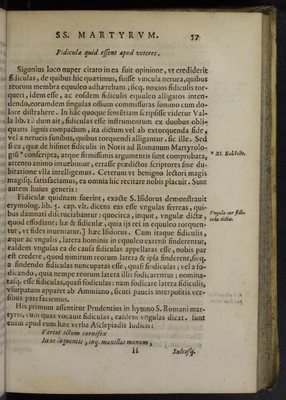 SS. MARTYRVM. 57
Fidicula quid essent apud veteres.
Sigonius loco nuper citato in ea fuit opinione, vt crediderit
fidiculas, de quibus hic quærimus, fuisse vincula neruea, quibus
reorum membra equuleo adhærebant, sicq. nouios fidiculis tor-
queri, idem esse, ac eosdem fidiculis equuleo alligatos inten-
dendo, eorumdem singulas ossium commissuras summo cum do-
lore distrahere. In hac quoque sententiam scripsisse videtur Val-
la lib. dum ait, fidiculas esse instrumentum ex duobus obli-
quatis lignis compactum, ita dictum vel ab extorquenda fide,
vel a nerueis funibus, quibus torquendi alligantur. sic ille. Sed
si ea, quæ de hisnet fidiculis in Notis ad Romanum Martyrolo-
giũ * conscripta, atque firmissimis argumentis sunt comprobata,
attento animo intuebimur, errasse prædictos scriptores sine du-
bitatione vlla intelligemus. Ceterum vt benigno lectori magis
magisq. satisfaciamus, ea omnia hic recitare nobis placuit. Sunt
autem huius generis:
Fidiculæ quidnam fuerint, exacte S. Isidorus demonstrat
etymolog. lib. 5. cap. vlt. dicens eas esse vngulas ferreas, qui-
bus damnati discruciabantur: quocirca, inquit, vngulæ dictæ,
quod effodiant; hæ & fidiculæ, quia ijs rei in equuleo torquen-
tur, vt fides inueniatur. hæc Isidorus. Cum itaque fidiculis,
æque ac vngulis, latera hominis in equuleo extensi finderentur,
eædem vngulæ ea de causa fidiculas appellatas esse, nobis par
est credere, quod nimirum reorum latera & ipsa finderent, sicq.
a findendo fidiculas nuncupatas esse, quasi findiculas; vel a fo-
dicando, quia nempe reorum latera illis fodicarentur: nomina-
tasq. esse fidiculas, quasi fodiculas: nam fodicare latera fidiculis,
vsurpatum apparet ab Ammiano, sicuti paucis interpositis ver-
sibus patefaciemus.
His primum assentitur Prudentius in hymno S. Romani mar-
tyris, cum quas vocauit fidiculas, easdem vngulas dicat. sunt
enim apud eum hæc verba Asclepiadis Iudicis:
Vertat ictum carnifex
In os loquentis, inq. maxillas manum,
H Sulcosq.
* XI. Kal. Febr.
Vngula cur fidi-
cula dicta.